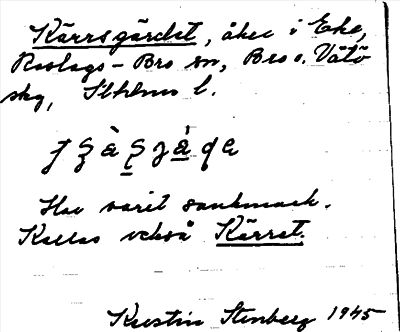 Kärrsgärdet, åker i Eke,
Roslags-Bro sn, Bro o. Vätö
skg, Sthlms l.
Har varit sankmark.
Kallas också Kärret.
Kerstin Stenberg 1945